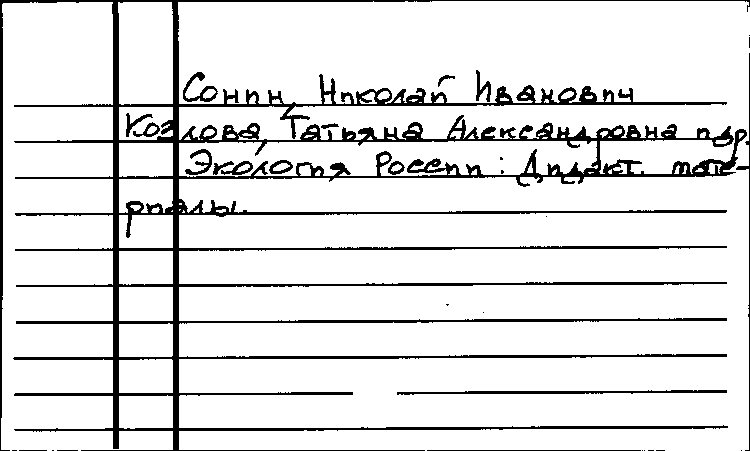 Сонин, Николай Иванович
Козлова, Татьяна Александровна и др.
Экология России: Дидакт. мате-
риалы.